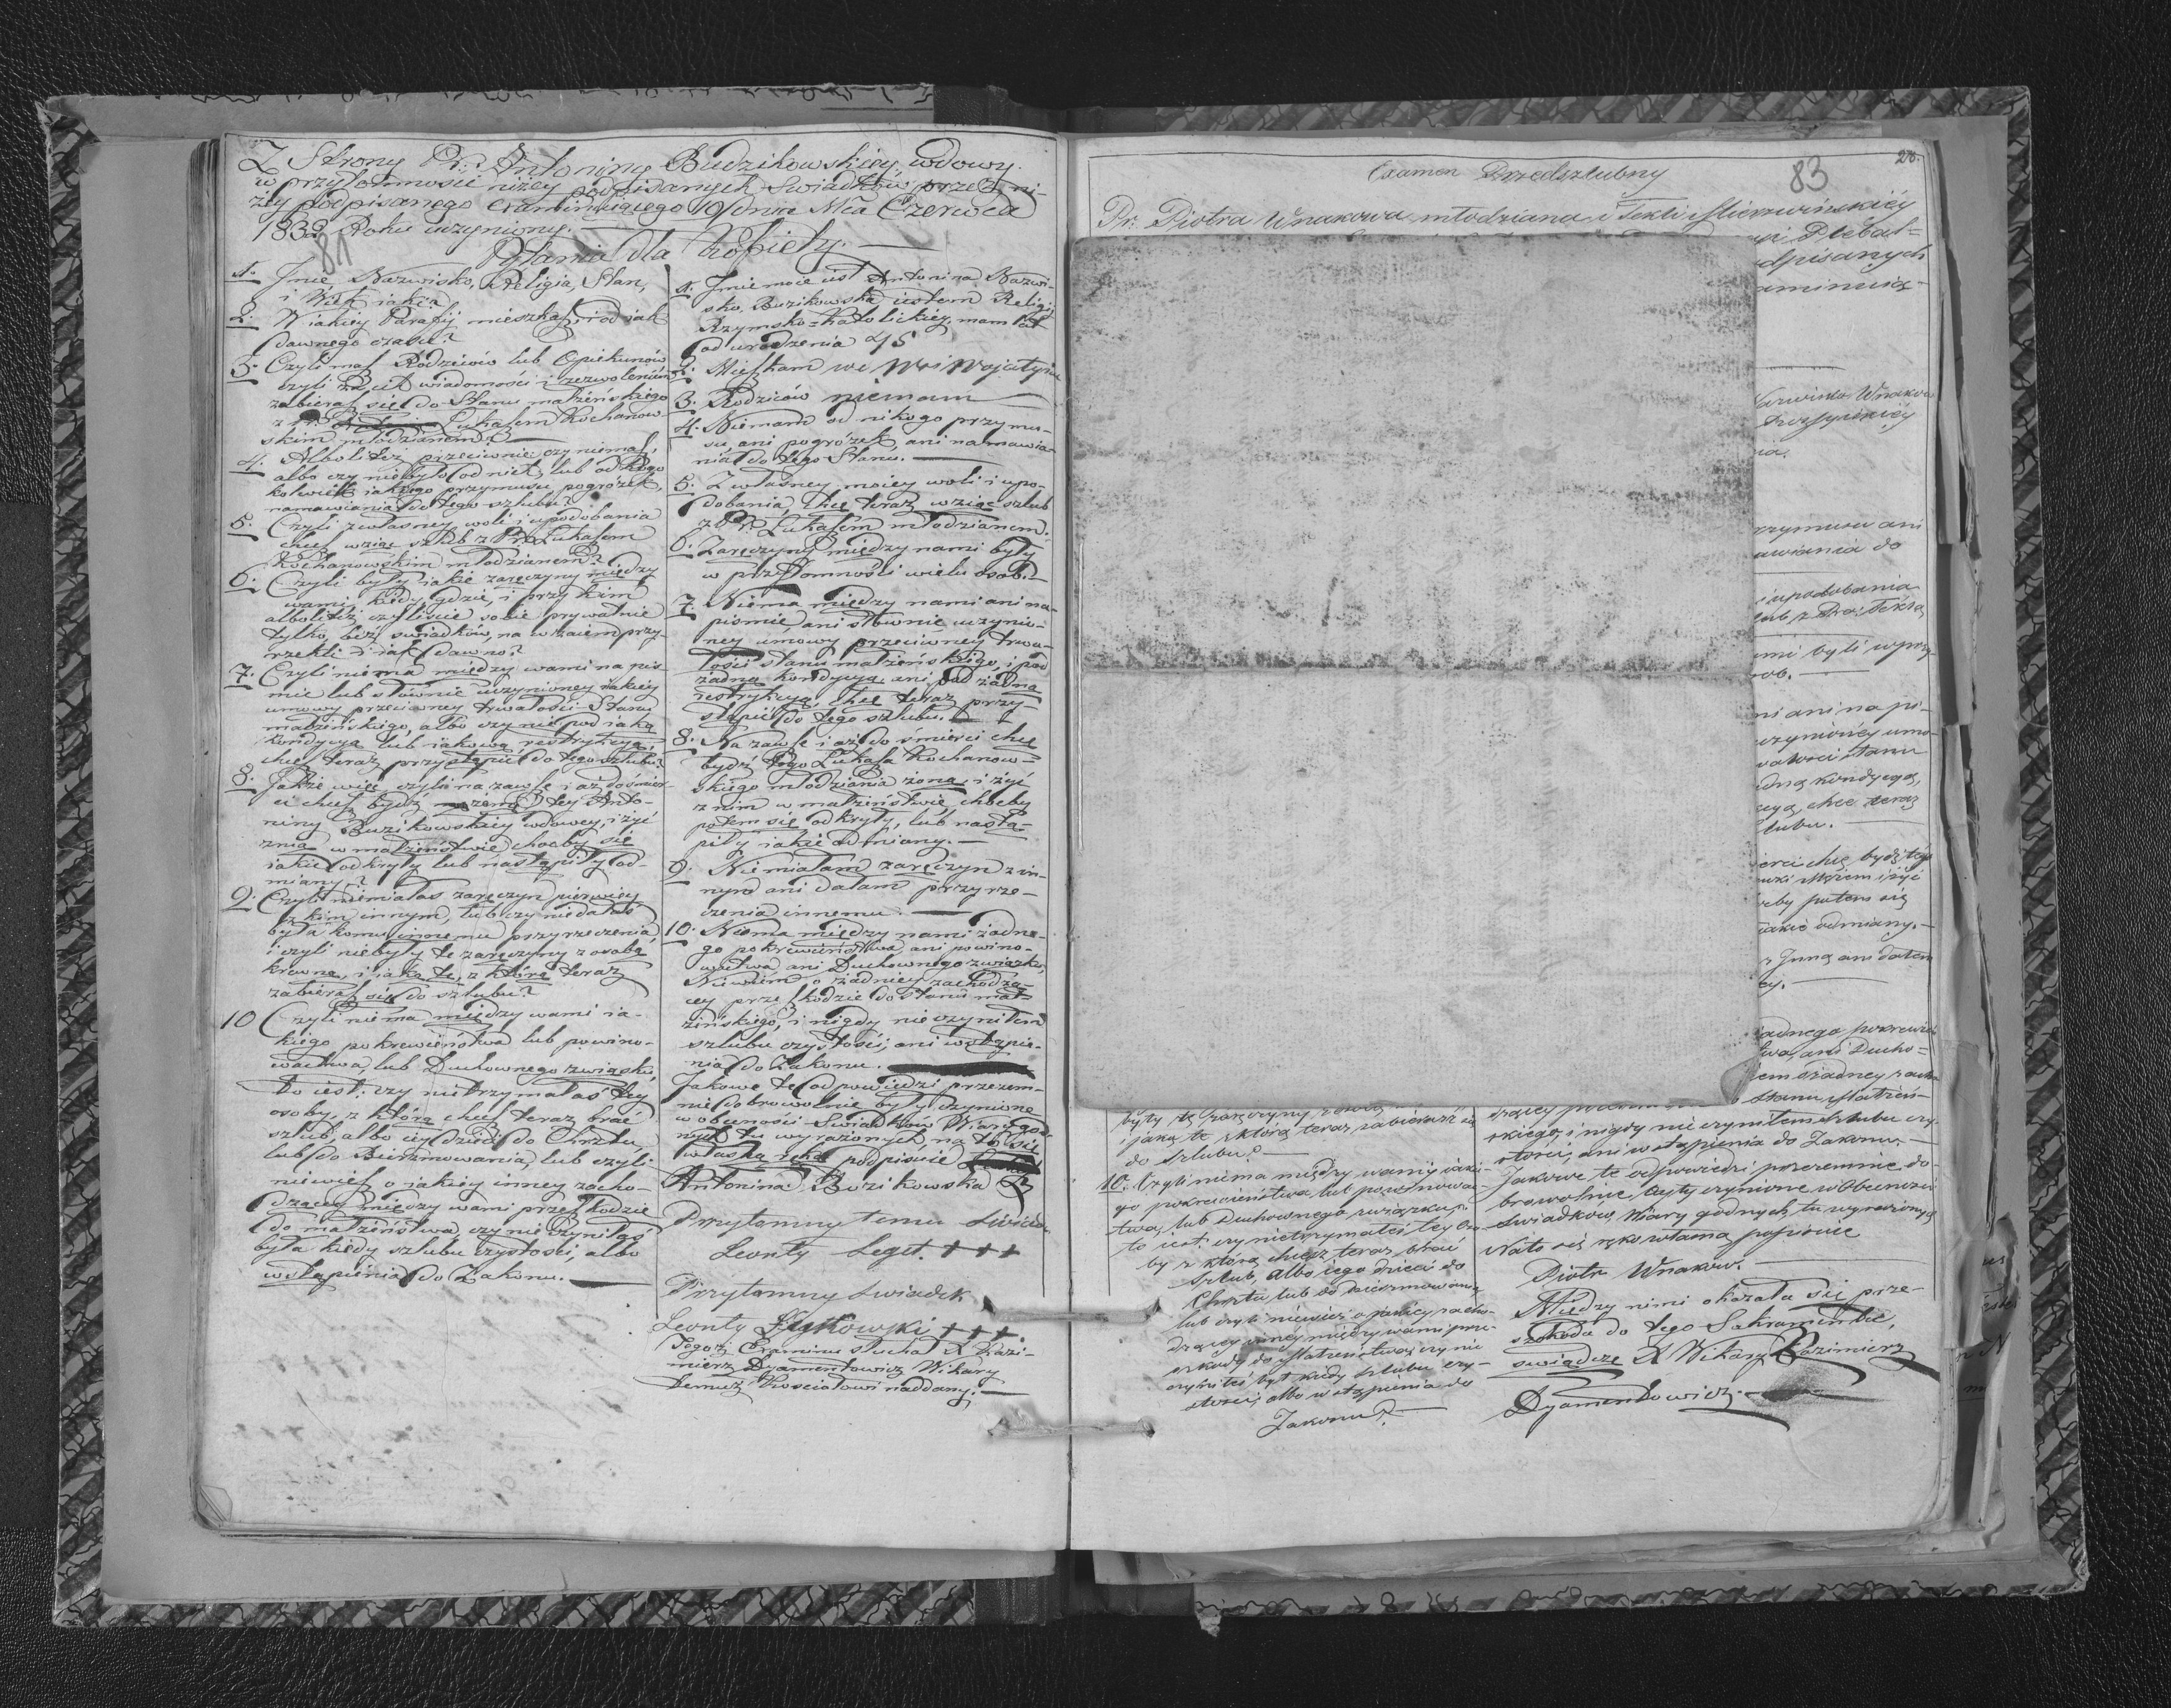 Z Strony Pr: Antoniny Budzikowskiey wdowy
w przytomności niżey podpisanych Swiadków przez ni-
żey podpisanego examinuiącego 19 dnia Mca Czerwca
183 Roku uczyniony.
81
Pytania dla Kobiety.
1. Jmie Nazwisko, Religia, Stan,
i Wiek iaki?
2. W iakiey Parafij mieszkasz, i od iak
dawnego czasu?
3. Czyli masz Rodziców lub Opiekunów
czyli za ich wiadomości i zezwoleniem
zabierasz się do Stanu małżeńskiego
z Pr: Łukaszem Kochanow-
skim młodzianem?
4. Albo liteż przeciwnie czy niemasz,
albo czy niebyło od nich, lub od kogo
kolwiek iakiego przymusu, pogróżek,
namawiania do tego szlubu?
5. Czyli z własney woli i upodobania
chcesz wziąć szlub z Pr: Łukaszem
Kochanowskim młodzianem?
6. Czyli były iakie zaręczyny między
wami, kiedy, gdzie, i przy kim
albo liteż czyliście sobie prywatnie
tylko, bez swiadków, na wzaiem przy-
rzekli i iak dawno?
7. Czyli niema między wami na pis-
mie lub słownie uczynioney iakiey
umowy przeciwney trwałości Stanu
małżeńskiego, albo czy nie pod iaką
kondycyą lub iakową restrykcyą,
chcesz teraz przystąpić do tego szlubu?
8. Jakże więc czyli na zawsze i aż do śmier-
ci chcesz bydź tey Anto-
niny Buzikowskiey wdowey, i żyć
z nią w małżeństwie choćby się
iakie odkryły lub nastąpiły od-
miany?
9. Czyli niemiałaś zaręczyn pierwiey
z kim innym, lub czy niedałaś
była komu innemu przyrzeczenia,
i czyli niebyły te zaręczyny z osobą
krewną, i iaką tę, z którą teraz
zabierasz się do szlubu?
10 Czyli niema między wami ia-
kiego pokrewieństwa lub powino-
wactwa, lub Duchownego związku,
to iest: czy nietrzymałaś tey
osoby, z którą chcesz teraz brać
szlub, albo iey dzieci do Chrztu,
lub do Bierzmowania, lub czyli
niewiesz o iakiey inney zacho-
dzącey między wami przeszkodzie
do małżeństwa, czy nie czyniłaś
była kiedy szlubu czystości, albo
wstąpienia do Zakonu.
1. Jmie moie iest Antonina Nazwi-
sko, Buzikowska, iestem Religij
Rzymsko=Katolickiey, mam lat
od urodzenia 45
2. Mieszkam we Wsi Wojutyn
3. Rodziców niemam
4. Niemam od nikogo przymu-
su, ani pogróżek, ani namawia-
nia do tego Stanu.
5. Z własney moiey woli i upo-
dobania, chcę teraz wziąć szlub
z Pr: Łukaszem młodzianem.
6. Zaręczyny między nami były
w przytomności wielu osob.
7. Niema między nami ani na
piśmie, ani słownie uczynio-
ney umowy przeciwney trwa-
łości stanu małżeńskiego, i pod
żadną kondycyą, ani pod żadną
restrykcyą, chcę teraz przy-
stąpić do tego szlubu.
8. Na zawsze i aż do śmierci chcę
bydź tego Łukasza Kochanow-
skiego młodziana żoną, i żyć
z nim w małżeństwie, choćby
potem się odkryły, lub nastą-
piły iakie odmiany.
9. Niemiałam zaręczyn z in-
nym ani dałam przyrze-
czenia innemu.
10. Niema między nami żadne-
go pokrewieństwa ani powino-
wactwa ani Duchownego związku,
Niewiem o żadney zachodzą-
cey przeszkodzie do stanu mał-
żeńskiego, i nigdy nie czyniłam
szlubu czystości, ani wstąpie-
nia do Zakonu.
Jakowe te odpowiedzi przezem-
nie dobrowolnie były czynione
w obecności Swiadków Wiary god-
nych tu wyrażonych, na to się
własną ręką podpisuię
Antonina Buzikowska
Przytomny temu Swiadek
Leonty Seget. +++
Przytomny Swiadek
Leonty +++
Tegoż Examinu słuchał X Kazi-
mierz Dyamentowicz Wikary
temuż Kościołowi naddany.
Examen Przedszlubny
83
26.
Pr: Piotra Wnakowa młodziana i Tekli Mierzwińskiéy
Plebal=
dpisanych
aminuią-
Nazwisko Wnakow
Rzymskiéy
nia.
rzymusu ani
awiania do
i upodobania
lub z Pra: Teklą
ami byli w przy-
sob.
ni ani na pi-
uczynionéy umo-
wałości stanu
adną kondycyą,
cyą, chcę teraz
lubu.
ierci chcę bydź téy
Mężem i żyć
ćby potem się
iakie odmiany.
z Jnną ani dałem
żadnego pokrewień
twa, ani Ducho=
iem o żadney zacho
były tę zaręczyny z osobą
i jaką te z którą teraz zabierasz się
do Szlubu?
10. Czyli niema między wami jakie-
go pokrewieństwa, lub powinowac-
twa, lub Duchownego związku
to iest: czy nietrzymałeś tey Oso-
by z którą chcesz teraz brać
Szlub, albo iego dzieci do
Chrztu lub do bierzmowania,
lub czyli niewiesz o jakiéy zacho-
dzącéy inney między wami prze-
szkody do Małżeństwa, czy nie
czyniłeś był kiedy Szlubu czy-
stości, albo wstąpienia do
Zakonu?
Stanu Małżeń-
skiego, i nigdy nie czyniłem Szlubu czy-
stości, ani wstąpienia do Zakonu.
Jakowe te odpowiedzi przezemnie do-
browolnie, były czynione w Obecności
Swiadkow, Wiary godnych, tu wyrażonych
Na to się ręką własną popisuię
Piotr Wnakow.
Między nimi okazała się prze-
szkoda do tego Sakramentu,
swiadczę X Wikary Kazimierz
Dyamentowicz.